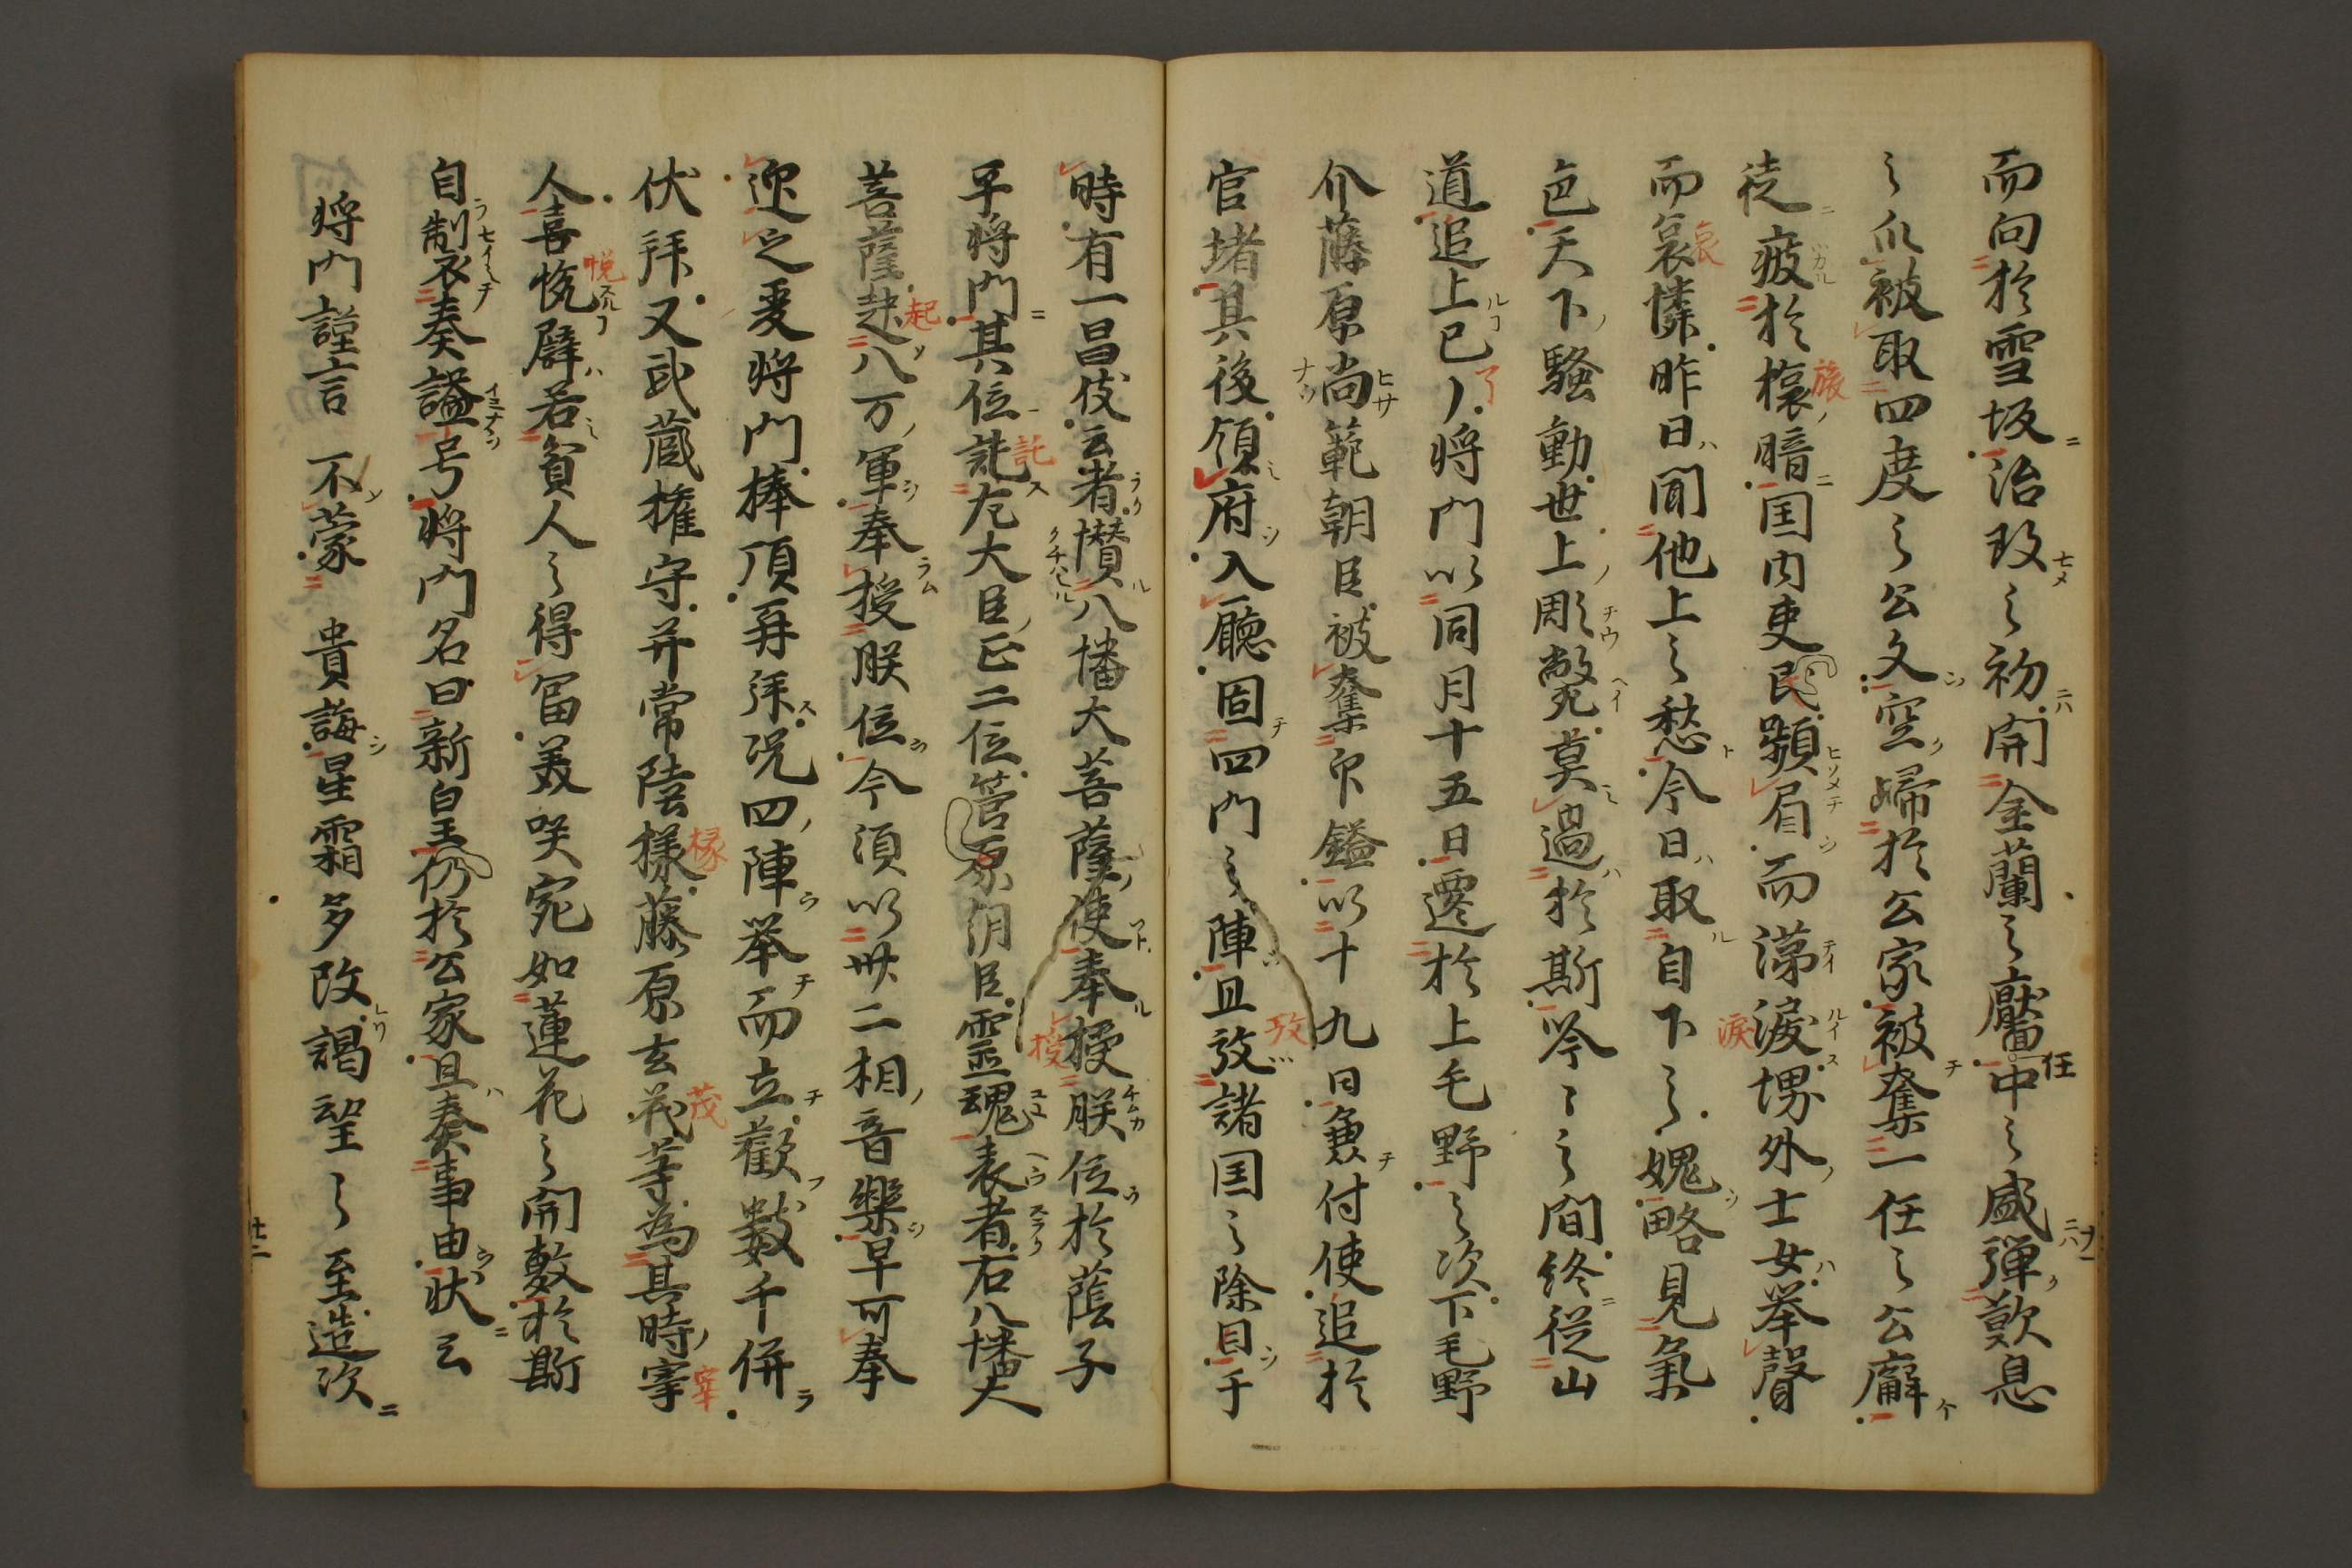 而向於雪坂治政之初開金蘭之靨任中之盛弾歎息
之爪被取四度之公文空帰於公家被奪一任之公廨
徒疲於旅暗国内吏民嚬眉而涕涙堺外士女挙聲
而哀憐昨日聞他上之愁今日取自下之媿略見氣
色天下騒動世上彫弊莫過於斯吟々之間終従山
道追上已了将門以同月十五日遷於上毛野之次下毛野
介藤原尚範朝臣被奪印鎰以十九日兼付使追於
官堵其後領府入廳固四門之陣且放諸国之除目于
時有一昌伎云者儹八幡大菩薩使奉授朕位於蔭子
平将門其位記左大臣正二位菅原朝臣霊魂表者右八幡大
菩薩起八万軍奉授朕位今須以卅二相音楽早可奉
迎之爰将門捧頂再拜況四陣挙而立歓數千併
伏拜又武蔵権守并常陸掾藤原玄茂等為其時宰
人喜悦譬若貧人之得冨美咲宛如蓮花之開敷於斯
自制奏謚号将門名曰新皇仍於公家且奏事由状云
将門謹言不蒙貴誨星霜多改謁望之至造次